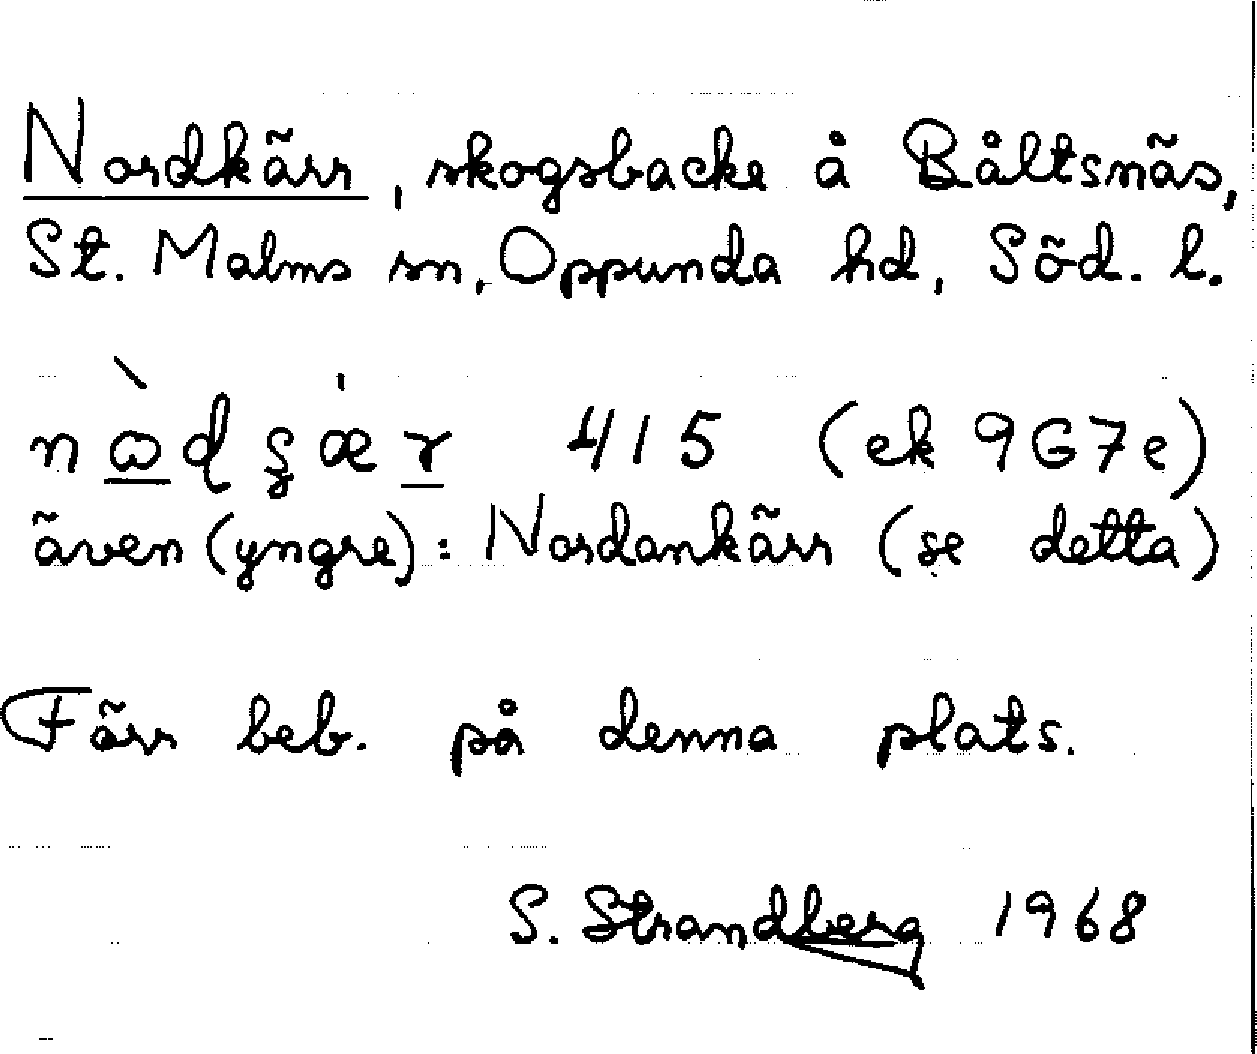 Nordkärr, skogsbacke å Båltsnäs,
St. Malms sn, Oppunda hd, Söd. l.
415 (ek 9G7e)
även (yngre): Nordankärr (se detta)
Färr beb. på denna plats.
S. Strandberg 1968